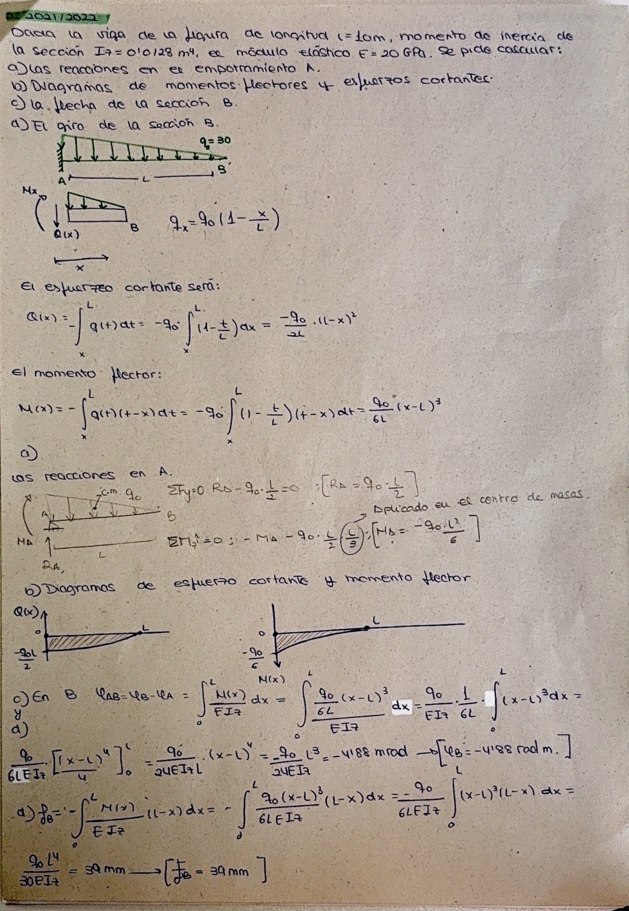 DE 2021/2022
Dada la viga de la figura de longitud L=10m, momento de inercia de
la sección Iz=0'0128 m⁴, el módulo elástico E=20 GPa. Se pide calcular:
a) Las reacciones en el empotramiento A.
b) Diagramas de momentos flectores y esfuerzos cortantes.
c) La flecha de la sección B.
d) El giro de la sección B.
q=30
A L B
Mx
Q(x) B qx=q0(1-x/L)
x
El esfuerzo cortante será:
Q(x)=-∫ₓᴸ q(t)dt = -q0·∫ₓᴸ (1-t/L)dx = -q0/2L ·(L-x)²
El momento flector:
M(x)=-∫ₓᴸ q(t)(t-x)dt = -q0·∫ₓᴸ (1-t/L)(t-x)dt = q0/6L (x-L)³
a)
Las reacciones en A.
c.m q0 ΣFy=0 RA-q0·L/2=0 ; [RA=q0·L/2]
A B
Aplicado en el centro de masas.
MA RA L ΣMz=0; -MA-q0·L/2(L/3); [MA=-q0·L²/6]
b) Diagramas de esfuerzo cortante y momento flector
Q(x) 0 L -q0L/2
0 L -q0/6 M(x)
c) En B φAB=φB-φA = ∫₀ᴸ M(x)/EIz dx = ∫₀ᴸ q0/6L (x-L)³/EIz dx = q0/EIz · 1/6L · ∫₀ᴸ (x-L)³dx =
y
d)
q0/6LEIz · [(x-L)⁴/4]₀ᴸ = q0/24EIzL ·(x-L)⁴ = -q0/24EIz L³ = -4'88 mrad → [φB=-4'88 radm.]
d) fB=-∫₀ᴸ M(x)/EIz (L-x)dx = -∫₀ᴸ q0(x-L)³/6LEIz (L-x)dx = -q0/6LEIz ∫₀ᴸ (x-L)³(L-x) dx =
q0L⁴/30EIz = 39mm → [fB = 39mm]